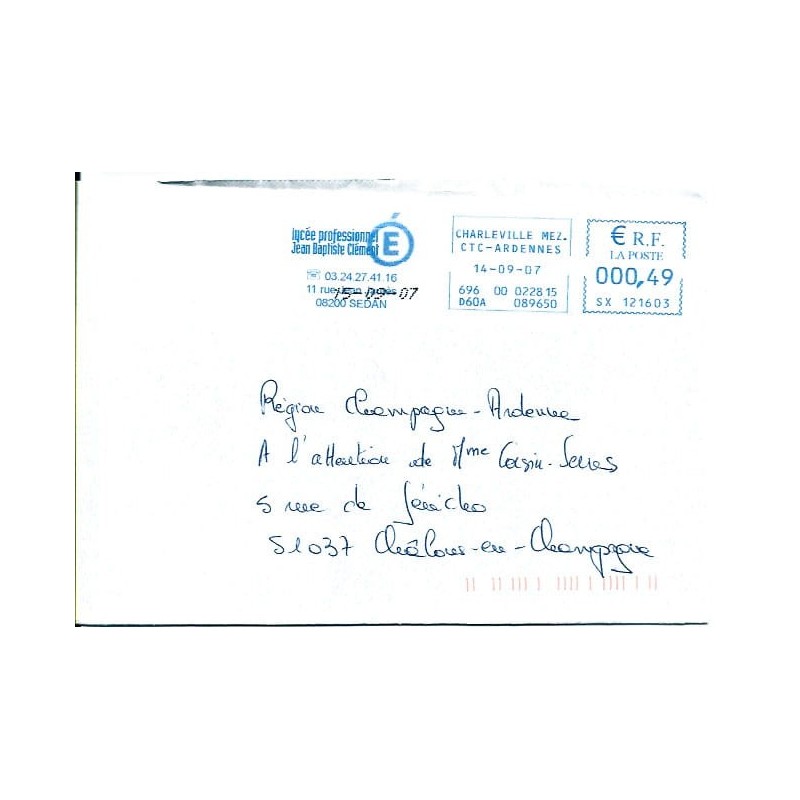 lycée professionnel
Jean Baptiste Clément
É
☏ 03.24.27.41.16
11 rue Jean Jaurès
15-09-07
08200 SEDAN
CHARLEVILLE MEZ.
CTC-ARDENNES
14-09-07
696 00 022815
D60A 089650
€ R.F.
LA POSTE
000,49
SX 121603
Région Champagne-Ardenne
A l'attention de Mme
5 rue de Jéricho
51037 Châlons-en-Champagne